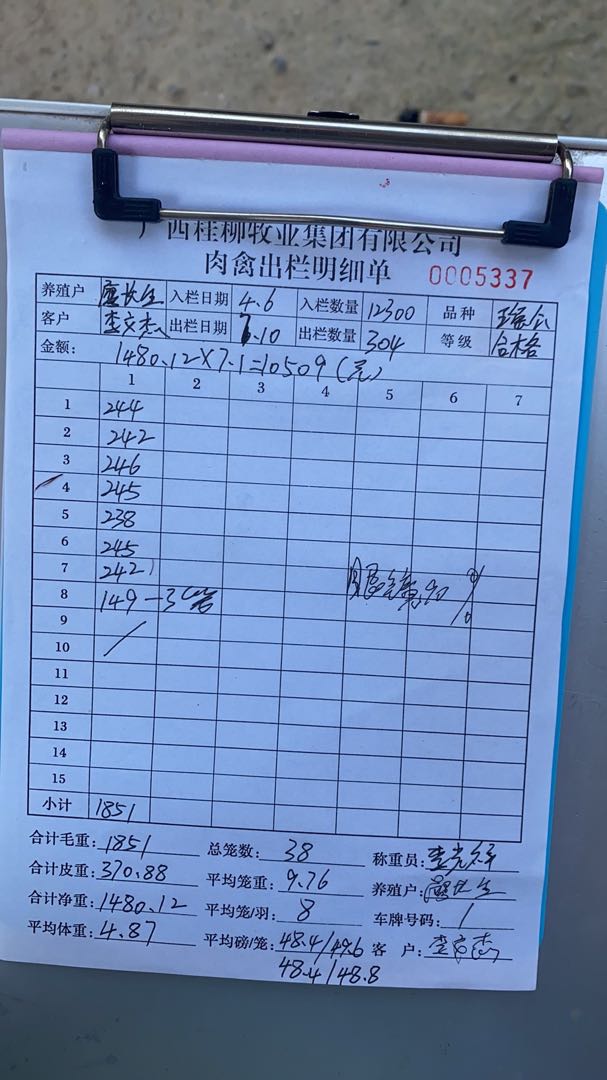 广西桂柳牧业集团有限公司
肉禽出栏明细单 0005337
养殖户 长生 入栏日期 4.6 入栏数量 12300 品种
客户 李文杰 出栏日期 7.10 出栏数量 304 等级 合格
金额: 1480.12×7.1=10509(元)
1 2 3 4 5 6 7
1 244
2 242
3 246
4 245
5 238
6 245
7 242
8 149-3笼 90%
9
10 /
11
12
13
14
15
小计 1851
合计毛重: 1851 总笼数: 38 称重员: 李光
合计皮重: 370.88 平均笼重: 9.76 养殖户: 长生
合计净重: 1480.12 平均笼/羽: 8 车牌号码: 1
平均体重: 4.87 平均磅/笼: 48.4/49.6 客 户: 李文杰
48.4/48.8